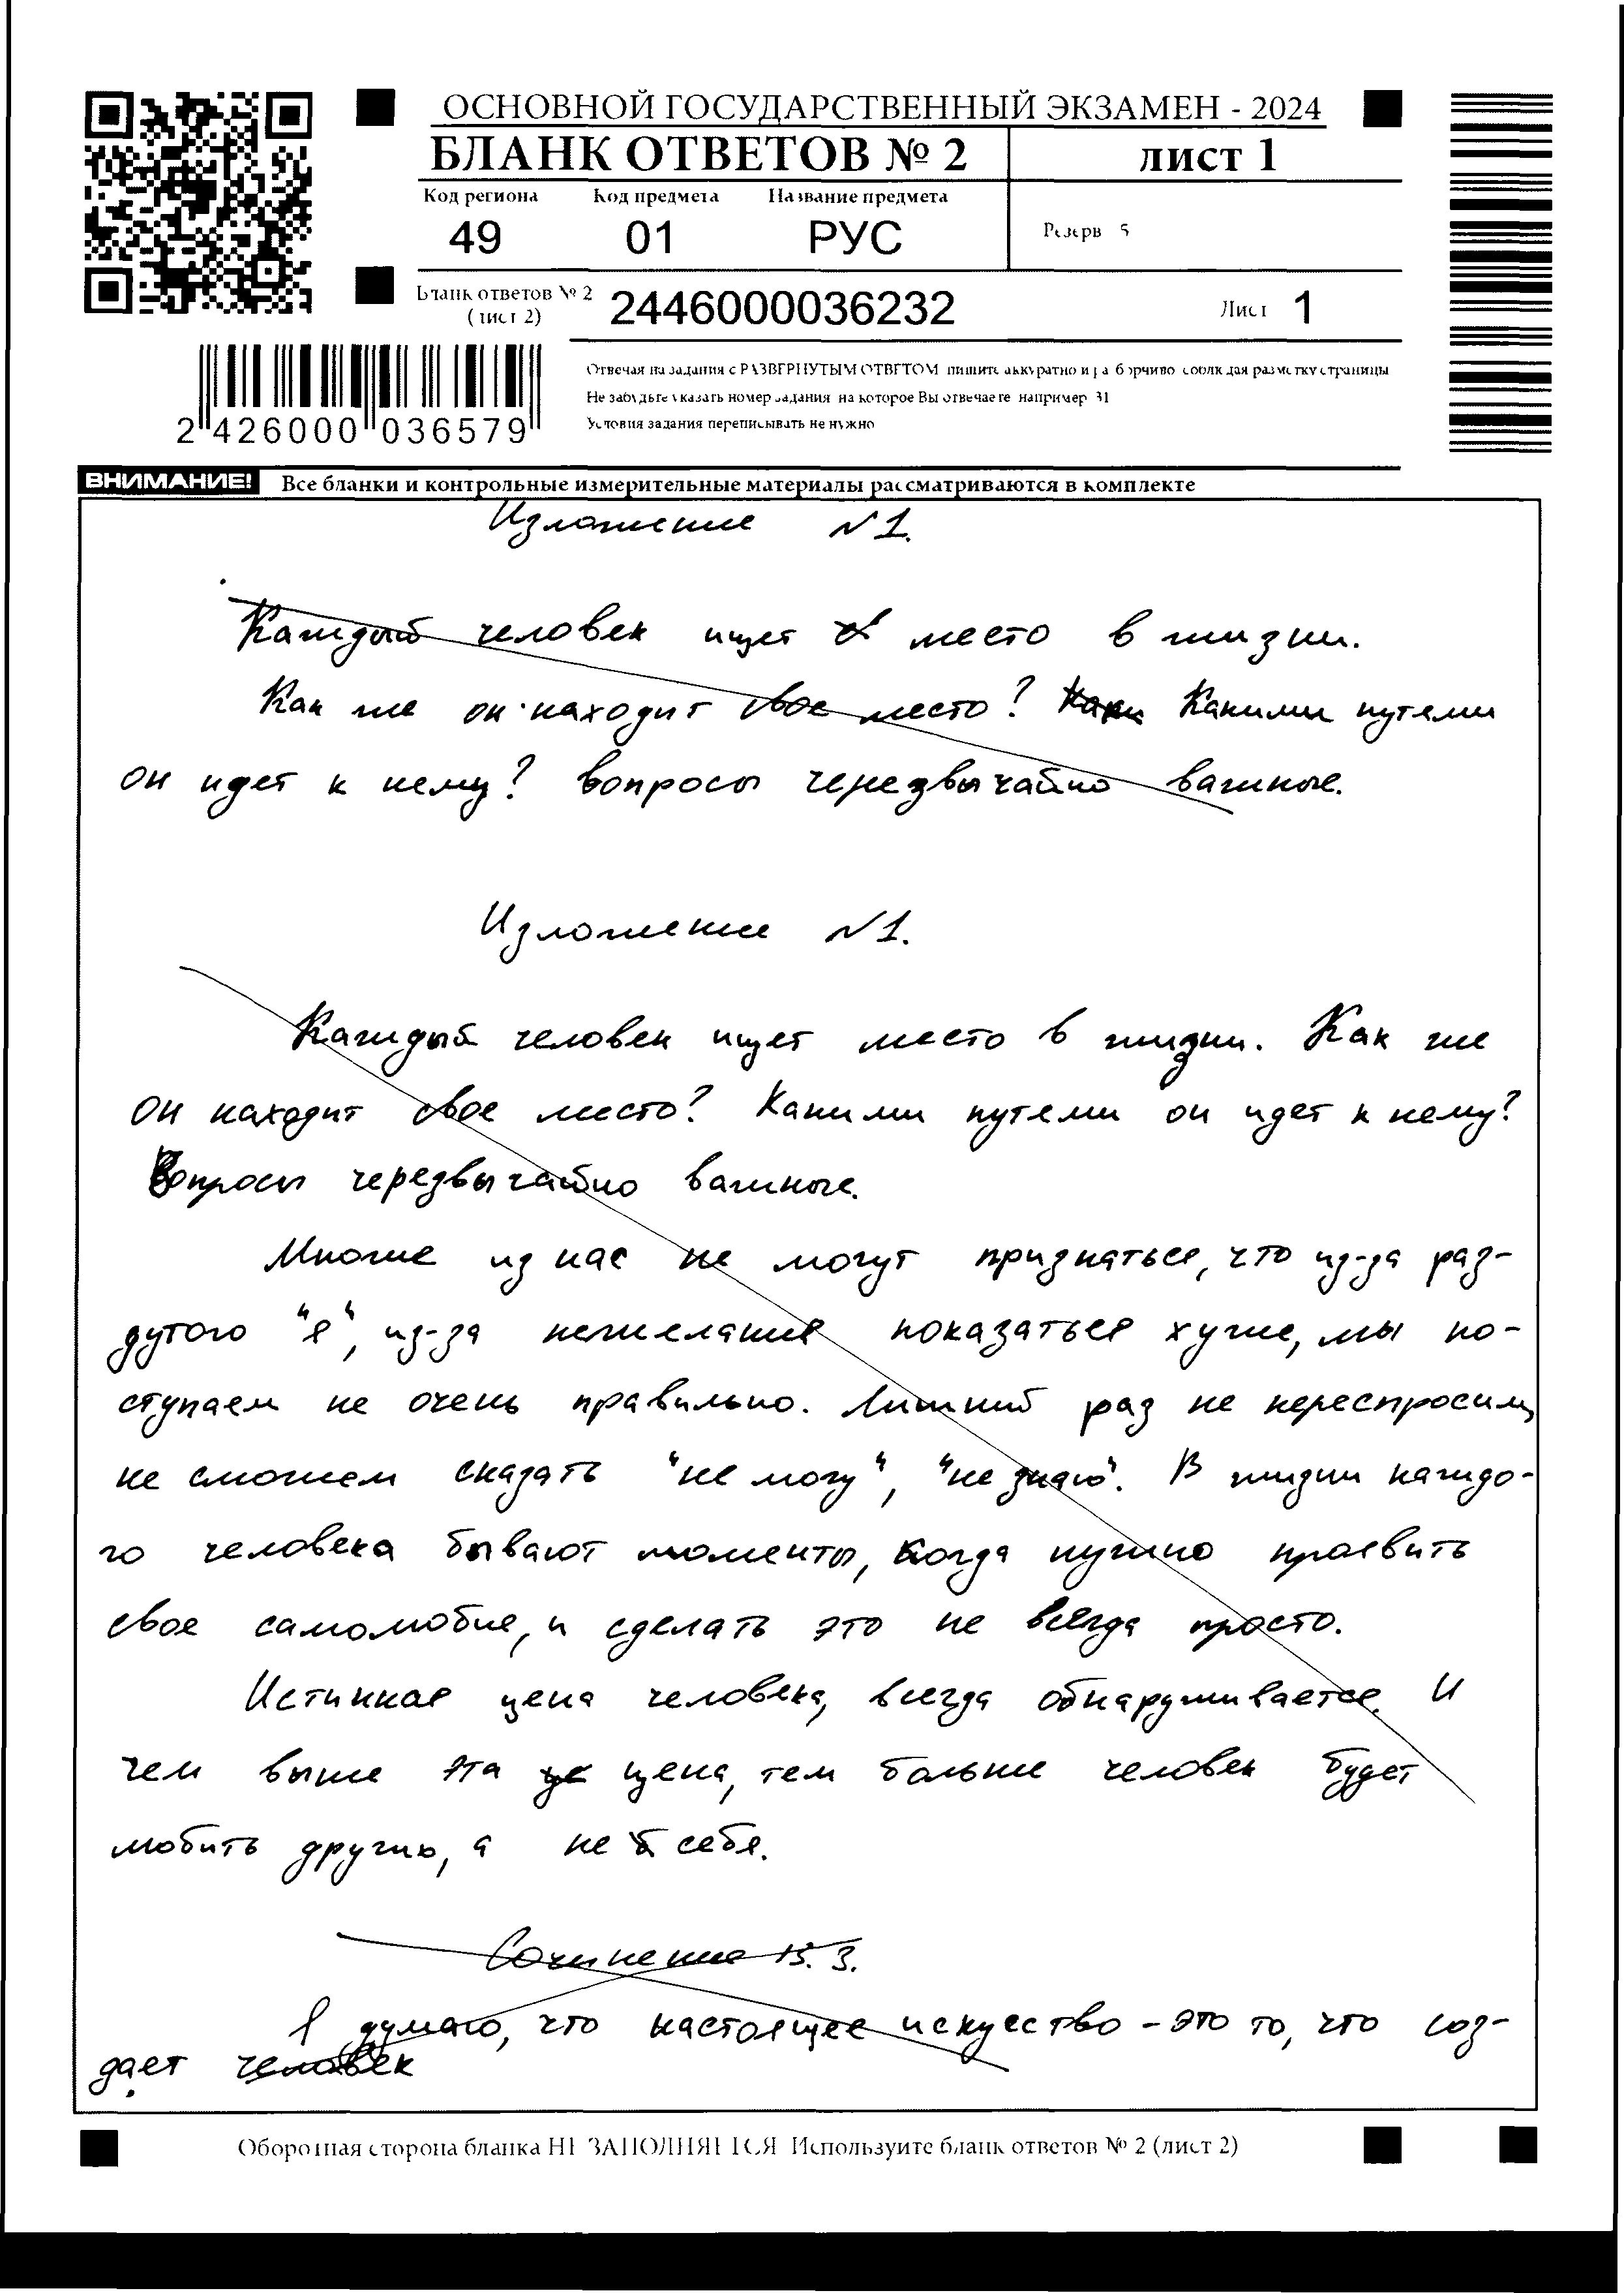 ОСНОВНОЙ ГОСУДАРСТВЕННЫЙ ЭКЗАМЕН - 2024
БЛАНК ОТВЕТОВ № 2 лист 1
Код региона Код предмета Название предмета
49 01 РУС Резерв 5
Бланк ответов № 2
(лист 2) 2446000036232 Лист 1
Отвечая на задания с РАЗВЕРНУТЫМ ОТВЕТОМ пишите аккуратно и разборчиво соблюдая разметку страницы
Не забудьте указать номер задания на которое Вы отвечаете например 31
Условия задания переписывать не нужно
2 426000 036579
ВНИМАНИЕ! Все бланки и контрольные измерительные материалы рассматриваются в комплекте
Изложение №1.
Каждый человек ищет место в жизни.
Как же он находит свое место? Как Какими путями
он идет к нему? вопросы черезвычайно важные.
Изложение №1.
Каждый человек ищет место в жизни. Как же
он находит свое место? Какими путеми он идет к нему?
Вопросы черезвычайно важные.
Многие из нас не могут признаться, что из-за раз-
дутого "я", из-за нежелания показаться хуже, мы по-
ступаем не очень правильно. Лишний раз не переспросим,
не сможем сказать "не могу", "не знаю". В жизни каждо-
го человека бывают моменты, когда нужно проявить
свое самолюбие, и сделать это не всегда просто.
Истинная цена человека, всегда обнаруживается. И
чем выше эта це цена, тем больше человек будет
любить других, а не себя.
Сочинение 13.3.
Я думаю, что настоящее искуество - это то, что соз-
дает человек
Оборотная сторона бланка НЕ ЗАПОЛНЯЕТСЯ Используйте бланк ответов № 2 (лист 2)